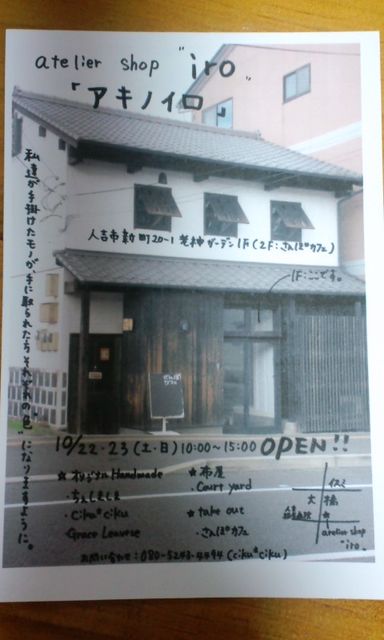 atelier shop "iro"
「アキノイロ」
私達が手掛けたモノが、手に取られたらそれぞれの"色"になりますように。
人吉市新町20-1 荒神ガーデン1F(2F:さんぽカフェ)
1F:ここです。
さんぽカフェ
10/22・23(土・日)10:00〜15:00 OPEN!!
★オリジナルHandmade
・ちょしましま
・Ciku*ciku
・Grace Leavese
★布屋
・Court yard
★take out
・さんぽカフェ
大橋
atelier shop
"iro"
お問い合わせ:080-5243-4494(ciku*ciku)